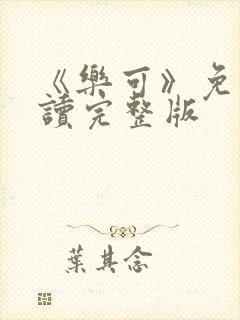 《樂可》免
讀完整版
葉其念